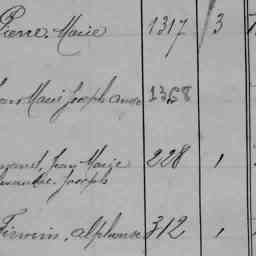 Pierre Marie 1317 3
Marie Joseph ange 1368
Jean Marie 228 1
Joseph
Firmin, alphonse 312 1